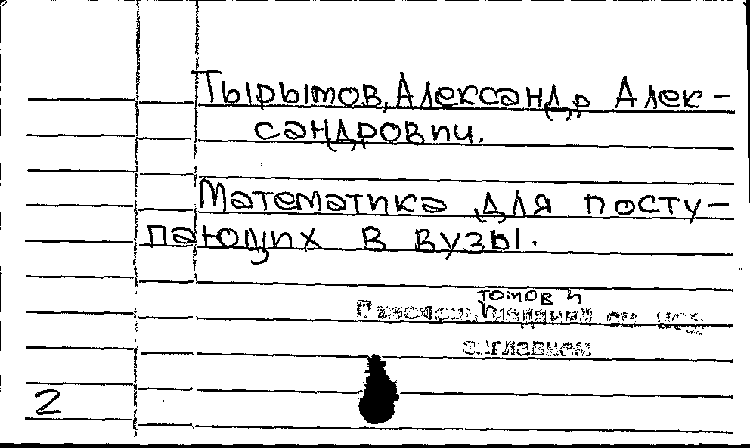 Тырымов, Александр Алек-
сандрович.
Математика для посту-
пающих в вузы.
томов и
2